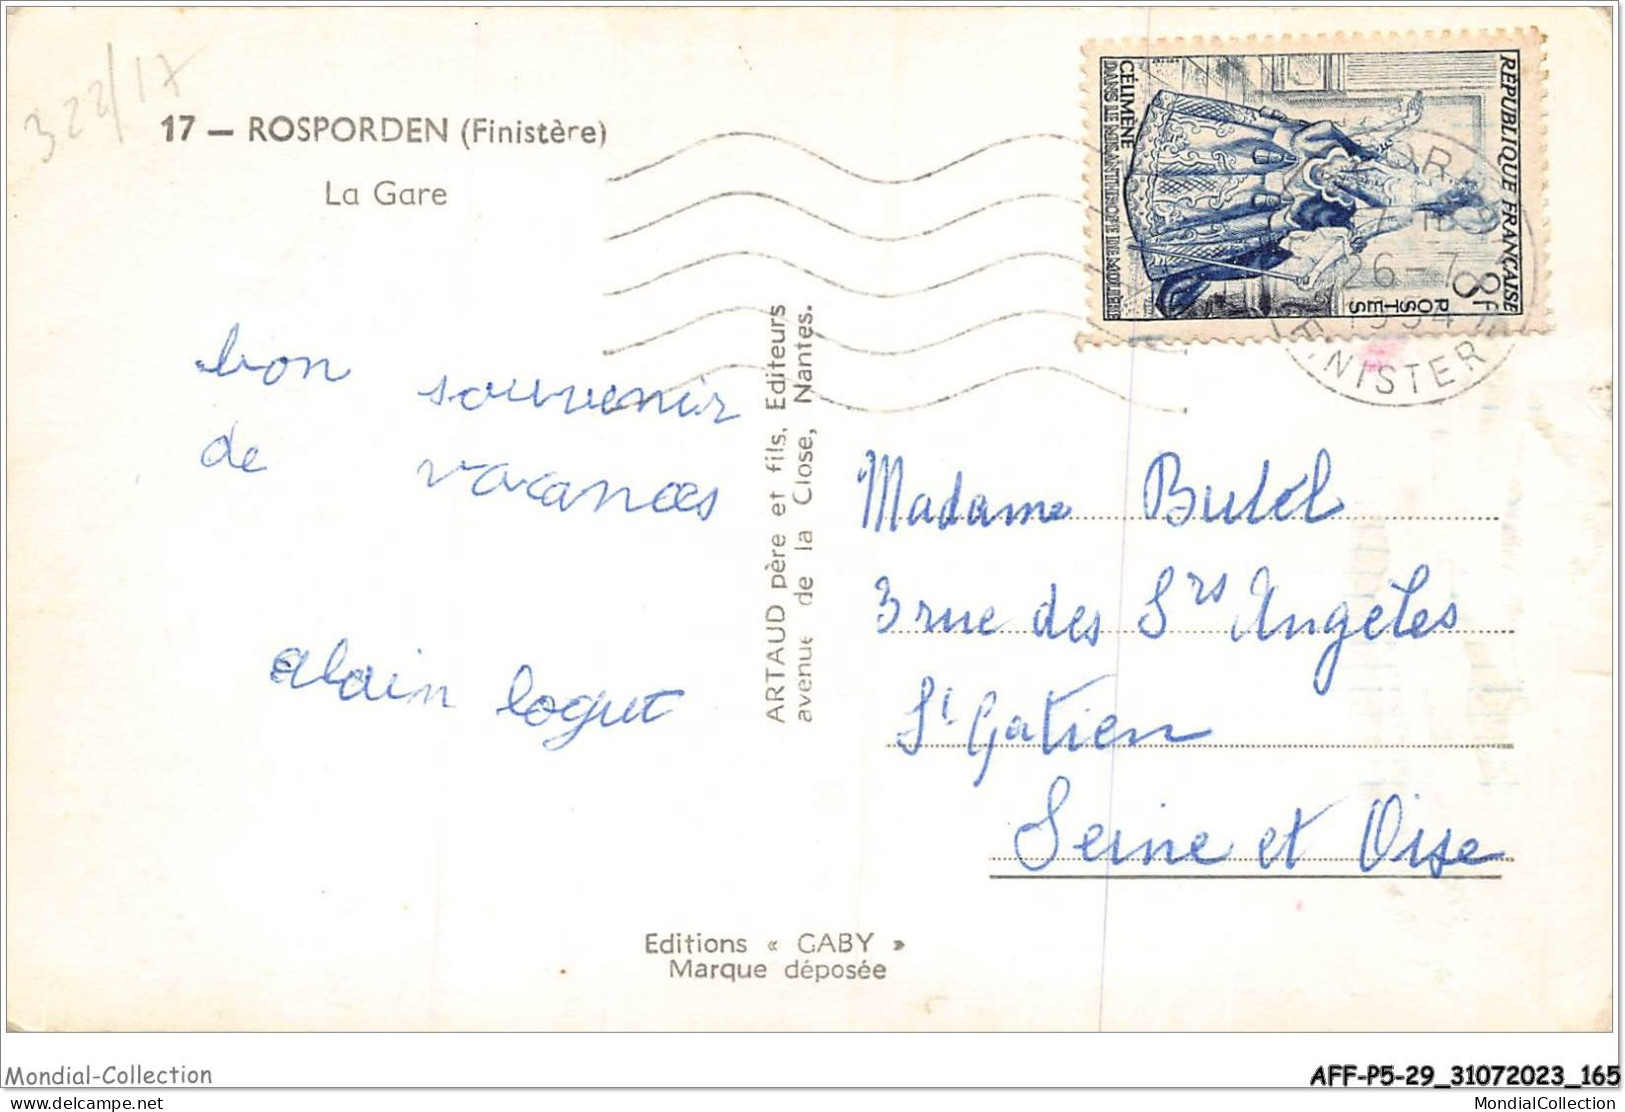 322/17
17 — ROSPORDEN (Finistère)
La Gare
bon souvenir
de vacances
alain logut
ARTAUD père et fils, Editeurs
avenue de la Close, Nantes.
RÉPUBLIQUE FRANÇAISE
8f
POSTES
CÉLIMÈNE
DANS LE MISANTHROPE DE MOLIÈRE
26-7
1954
FINISTER
Madame Butel
3 rue des Srs Angeles
St Gatien
Seine et Oise
Editions « GABY »
Marque déposée
Mondial-Collection
AFF-P5-29_31072023_165
delcampe.net
MondialCollection